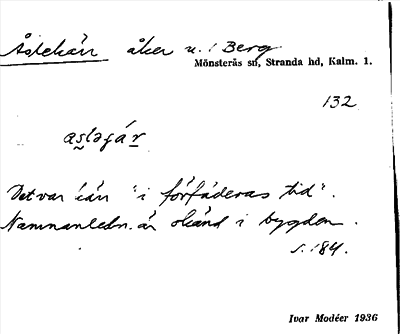 Åslekärr åker u. Berg
Mönsterås sn, Stranda hd, Kalm. 1.
132
Det var kärr "i förfäderas tid".
Namnanledn. är okänd i bygden.
s. 184.
Ivar Modéer 1936